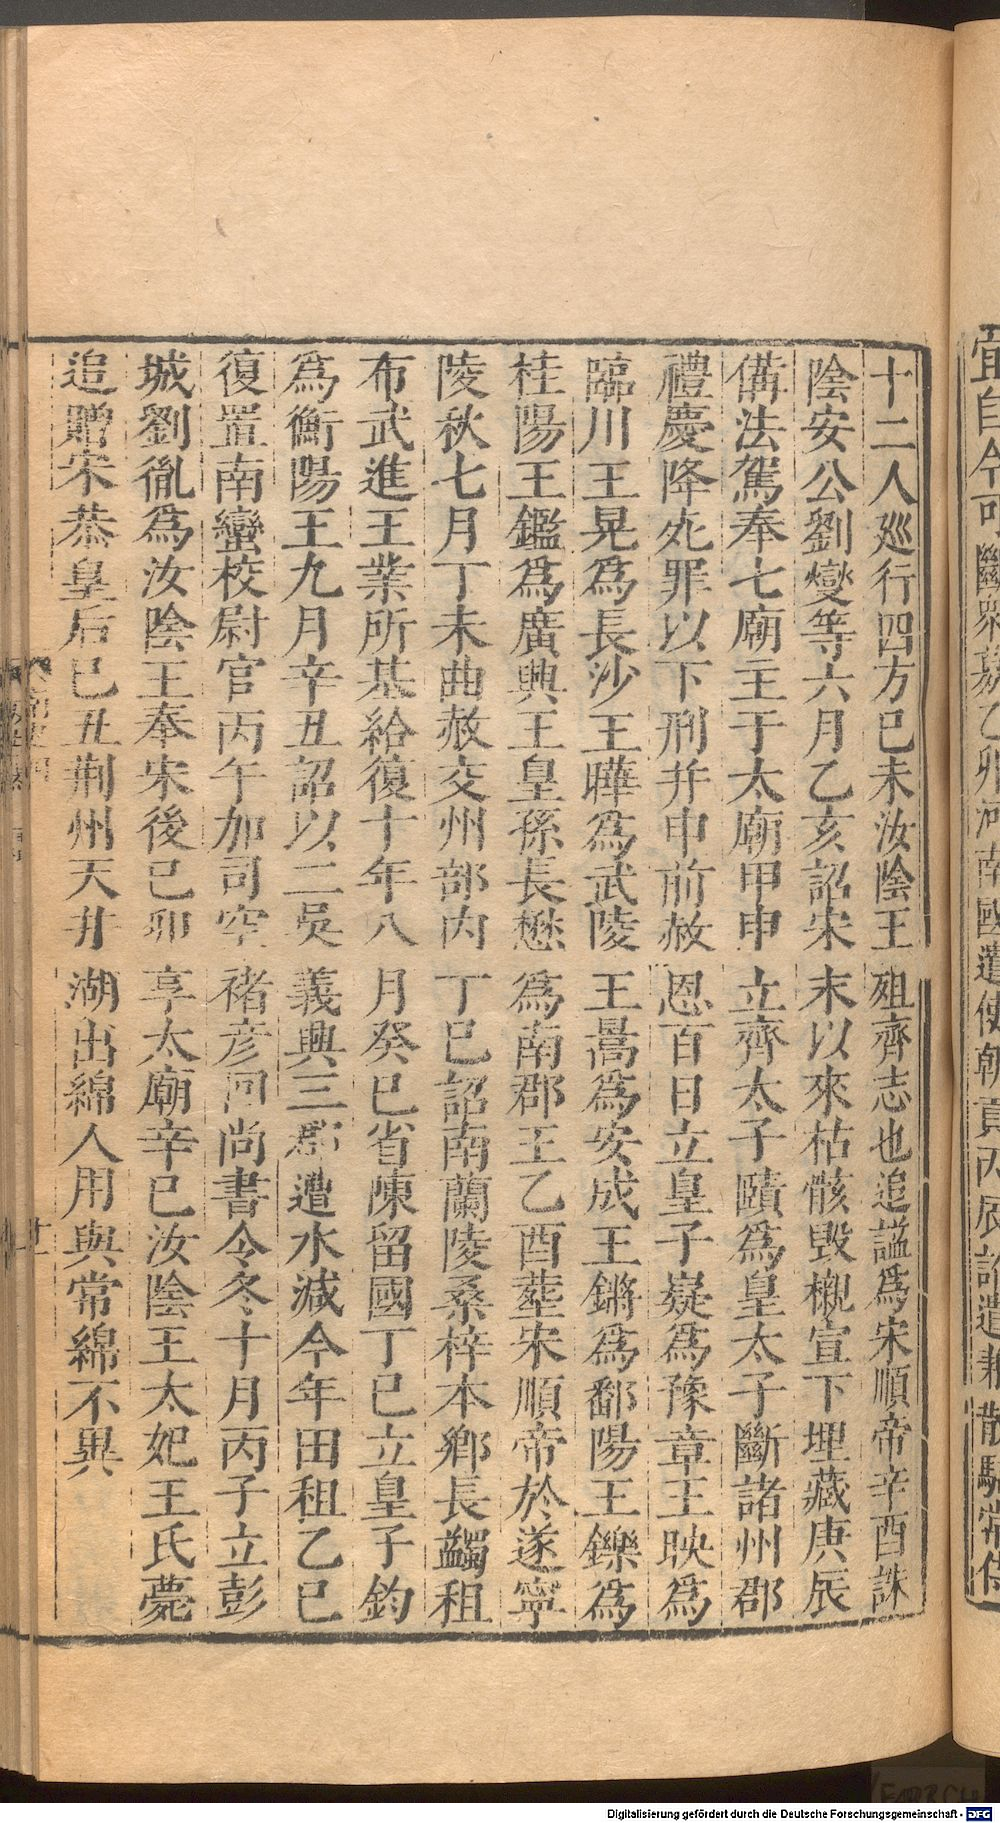 十二人巡行四方巳未汝陰王殂齊志也追謚爲宋順帝辛酉誅
陰安公劉燮等六月乙亥詔宋末以來枯骸毀櫬宣下埋藏庚辰
備法駕奉七廟主于太廟甲申立齊太子賾爲皇太子斷諸州郡
禮慶降死罪以下刑并申前赦恩百日立皇子嶷爲豫章王映爲
臨川王晃爲長沙王曄爲武陵王暠爲安成王鏘爲鄱陽王鑠爲
桂陽王鑑爲廣興王皇孫長懋爲南郡王乙酉塟宋順帝於遂寧
陵秋七月丁未曲赦交州部内丁巳詔南蘭陵桑梓本鄉長蠲租
布武進王業所基給復十年八月癸巳省陳留國丁巳立皇子鈞
爲衡陽王九月辛丑詔以二吳義興三郡遭水減今年田租乙巳
復置南蠻校尉官丙午加司空褚彦回尚書令冬十月丙子立彭
城劉胤爲汝陰王奉宋後己卯享太廟辛巳汝陰王太妃王氏薨
追贈宋恭皇后巳丑荆州天井湖出綿人用與常綿不異
Digitalisierung gefördert durch die Deutsche Forschungsgemeinschaft - DFG